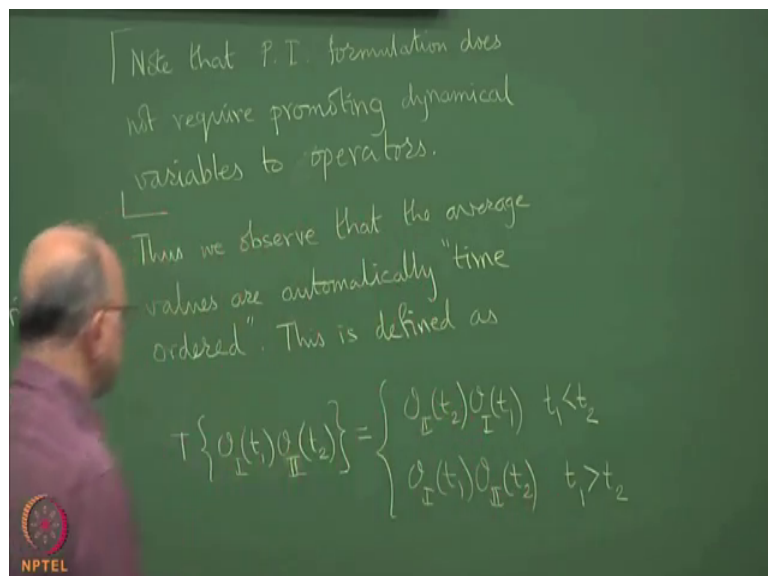 Note that P.I. formulation does
not require promoting dynamical
variables to operators.
Thus we observe that the average
values are automatically "time
ordered". This is defined as
T{O_I(t_1)O_II(t_2)} = { O_II(t_2)O_I(t_1) t_1<t_2
O_I(t_1)O_II(t_2) t_1>t_2
NPTEL